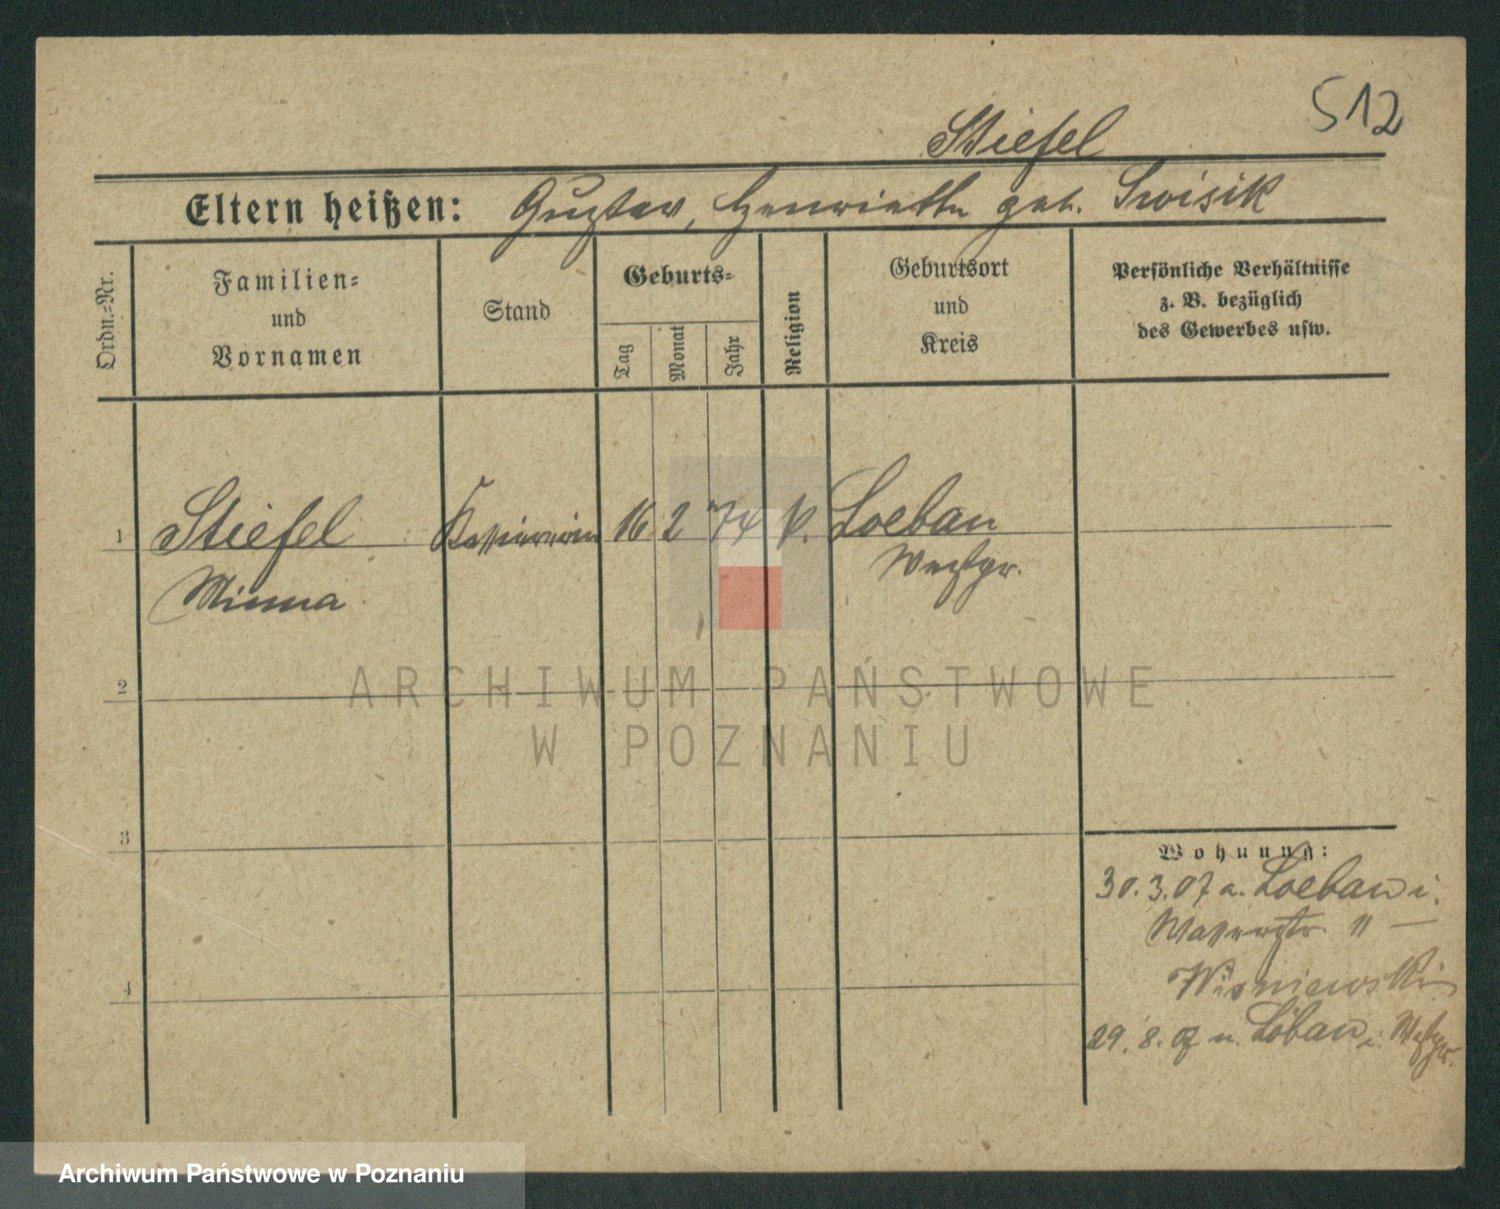 512
Stiefel
Eltern heißen: Gustav, Henriette geb. Swisik
Ordn.=Nr.
Familien=
und
Vornamen
Stand
Geburts=
Tag
Monat
Jahr
Religion
Geburtsort
und
Kreis
Persönliche Verhältnisse
z. B. bezüglich
des Gewerbes usw.
1 Stiefel Kassiererin 16 2 74 k. Loebau
Minna Westpr.
2
3
4
Wohnung:
30.3.07 a. Loebau i.
Wasserstr. 11 —
Wisniewski
29.8.07 n. Löbau i. Westpr.
ARCHIWUM PAŃSTWOWE
W POZNANIU
Archiwum Państwowe w Poznaniu